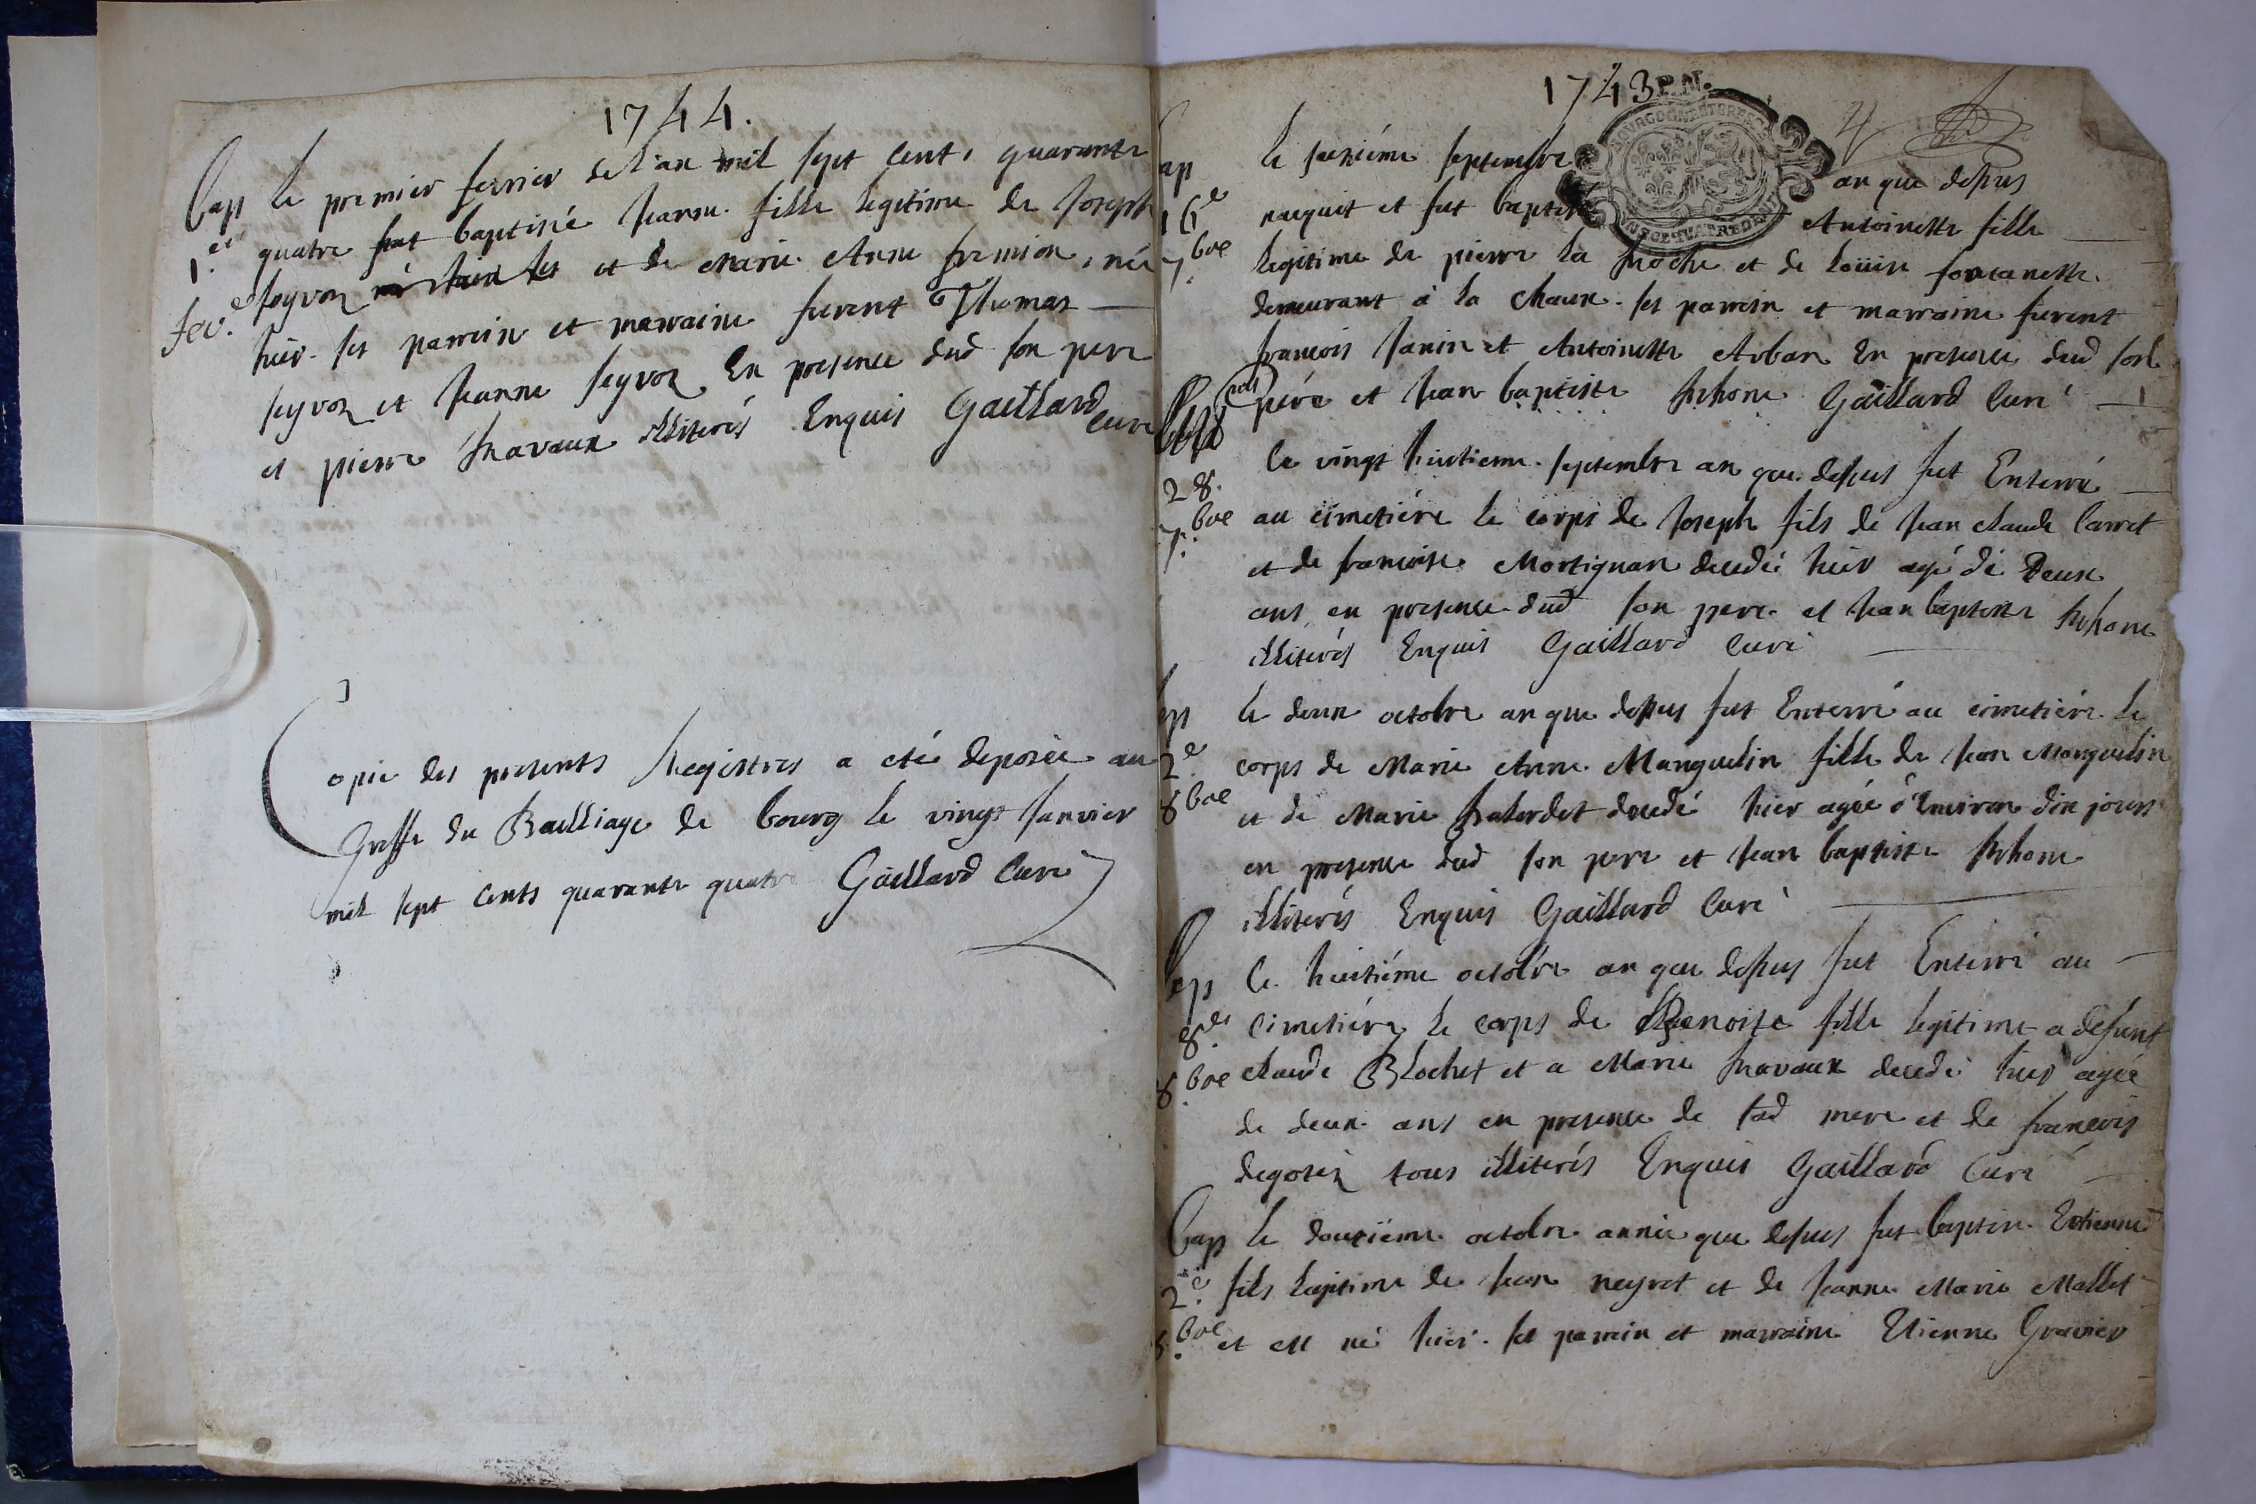 1744.
bap le premier fevrier de l'an mil sept cents quarante
1.er quatre fut baptisée Jeanne fille legitime de Joseph
fev. seyvoz et de Marie Anne fremion, née
hier. ses parrein et marraine furent Thomas
seyvoz et Jeanne seyvoz En presence dud son pere
et pierre travaux illiterés Enquis Gaillard
curé
Copie des presents Registres a eté deposée au
Greffe du Bailliage de bourg le vingt Janvier
mil sept cents quarante quatre Gaillard Curé
1743 P.N.
bap le seiziéme septembre an que desus
16e naquit et fut baptisée Antoinette fille
7.bre legitime de pierre la et de Loüise fontanette
demeurant à la Chaux. ses parrein et marraine furent
françois Janin et Antoinette Arban En presence dud
pére et Jean baptiste Gaillard Curé
le vingt huitieme septembre an que desus fut Enterré
28. au cimetiére le corps de Joseph fils de Jean claude Carret
7.bre et de françoise Mortignan decedé hier agé de Deux
ans en presence dud son pere et Jean baptiste
illiterés Enquis Gaillard Curé
le deux octobre an que desus fut Enterré au cimetiére le
2e corps de Marie Anne Manguelin fille de Jean Manguelin
8bre et de Marie decedé hier agée d'Environ dix jours
en presence dud son pere et Jean baptiste
illiterés Enquis Gaillard Curé
le huitiéme octobre an que desus fut Enterré au
8e Cimetiére le corps de Benoite fille legitime a defunt
8.bre claude Blochet et a Marie travaux decedé hier agée
de deux ans en presence de sad mere et de françois
degotez tous illiterés Enquis Gaillard Curé
bap le douziéme octobre année que desus fut baptisé Estienne
2.e fils legitime de Jean neyret et de Jeanne Marie Mallet
8.bre et est né hier. ses parrein et marraine Etienne Gravier